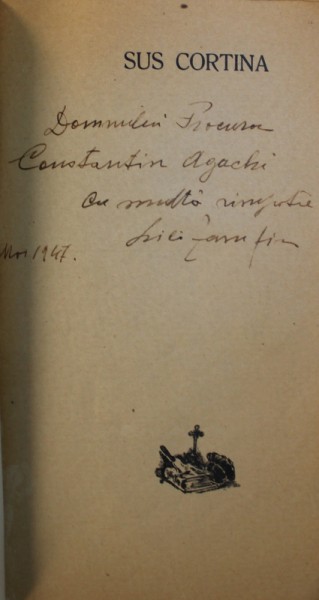 SUS CORTINA
Domnului Procuror
Constantin Agachi
cu multă simpatie
Mai 1947.